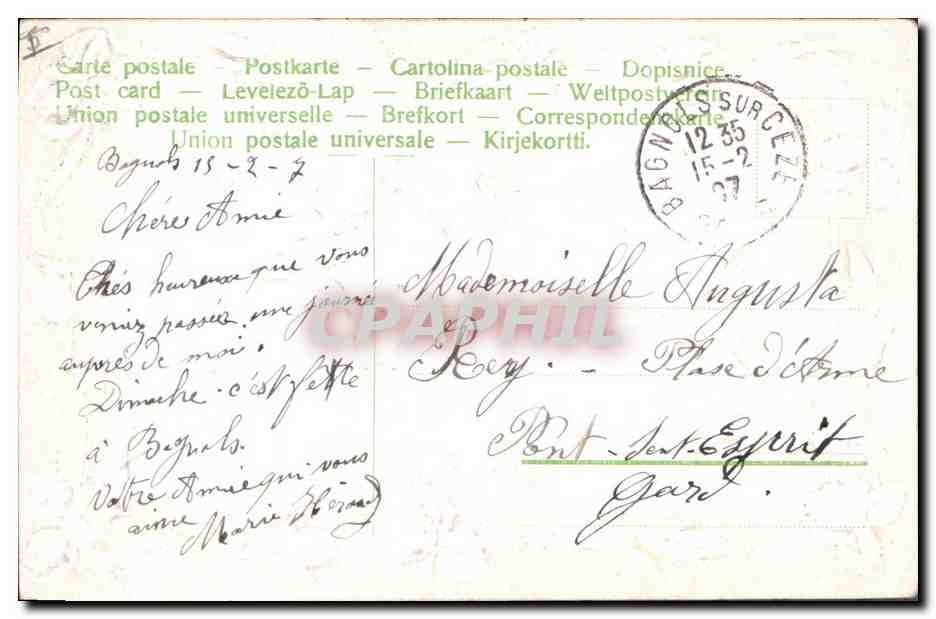 Carte postale – Postkarte – Cartolina postale – Dopisnice
Post card – Levelezõ-Lap – Briefkaart – Weltpostverein
Union postale universelle – Brefkort – Correspondenzkarte
Union postale universale – Kirjekortti.
BAGNOLS SUR CEZE
12 35
15-2
07
Bagnols 15-2-7
Chére Amie
Thés heureuse que vous
veniez passées une journée
aupres de moi.
Dimache c'est fette
à Bagnols.
Votre Amie qui vous
aime
Marie Héraud
Mademoiselle Augusta
Rey. – Plase d'Arme
Pont-Sent-Esprit
Gard.
CPAPHIL